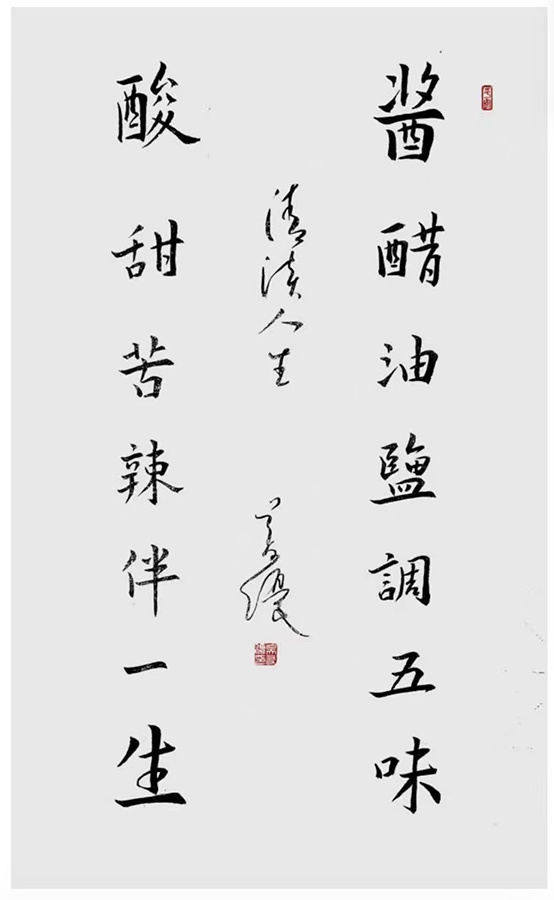 醬醋油鹽調五味
清淡人生
酸甜苦辣伴一生